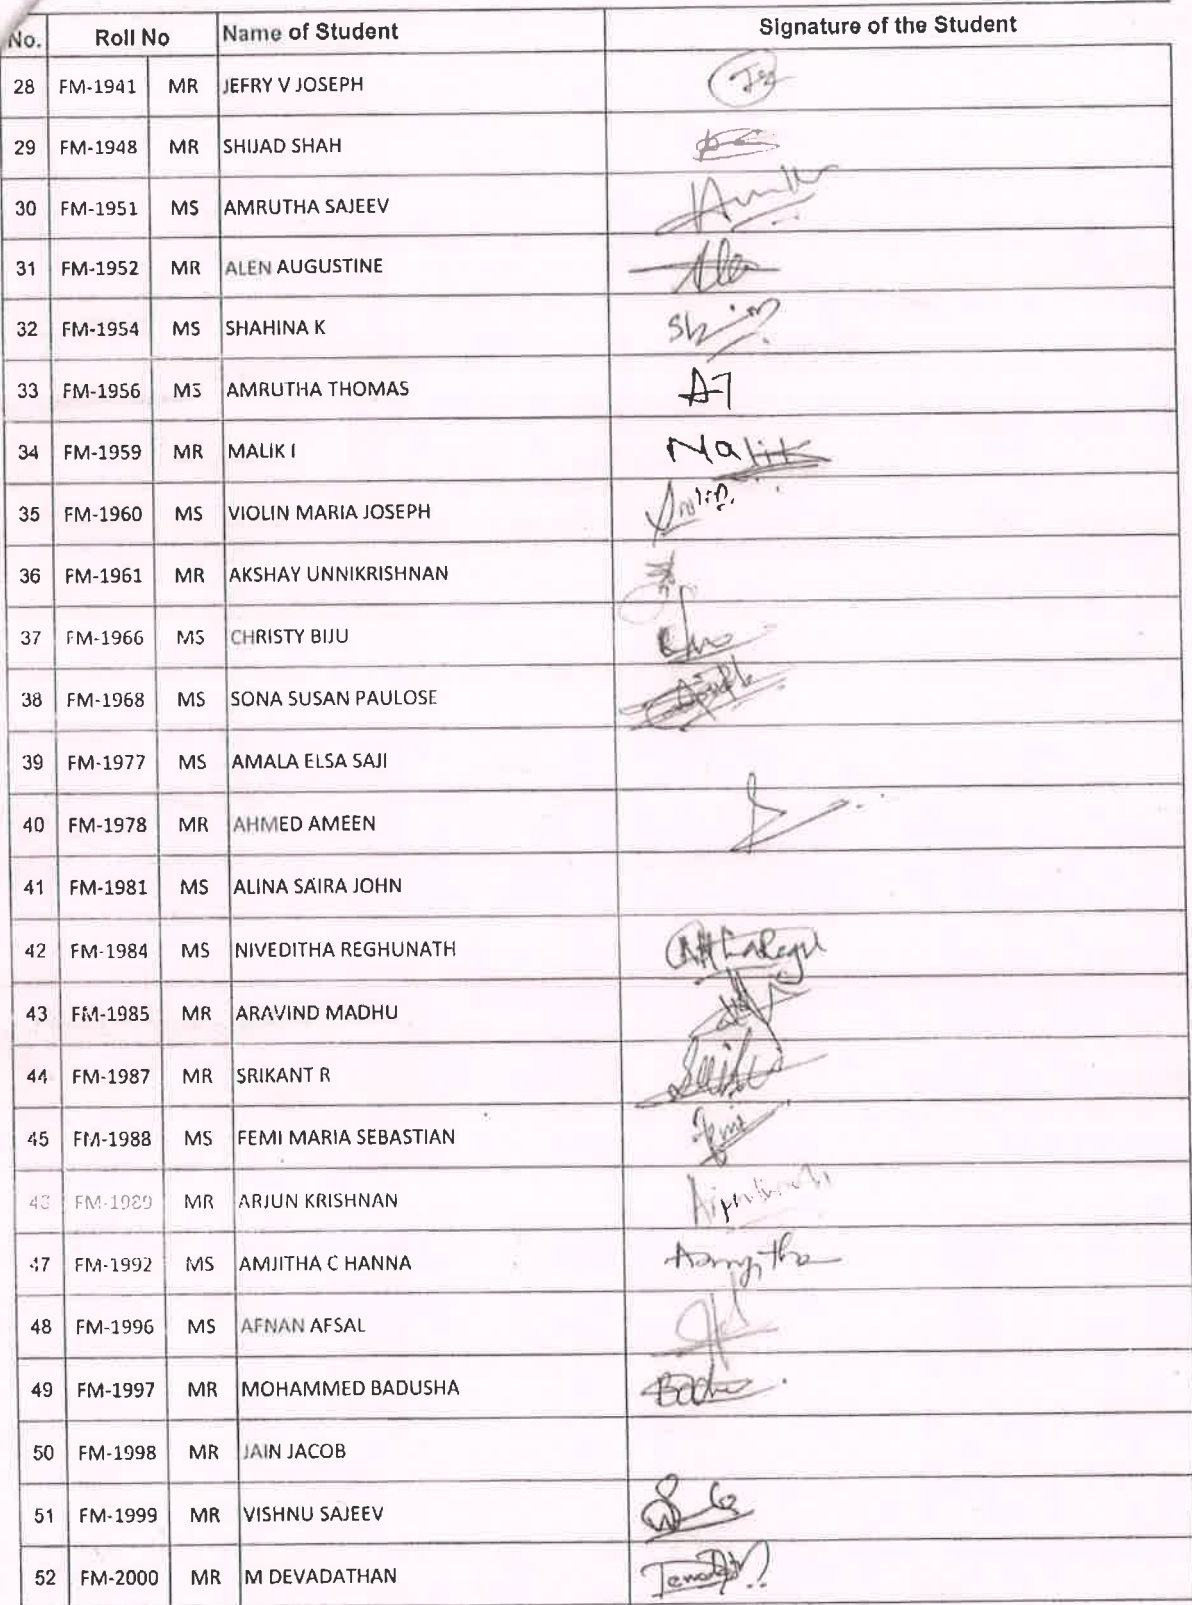 No. Roll No Name of Student Signature of the Student
28 FM-1941 MR JEFRY V JOSEPH
29 FM-1948 MR SHIJAD SHAH
30 FM-1951 MS AMRUTHA SAJEEV
31 FM-1952 MR ALEN AUGUSTINE Alen
32 FM-1954 MS SHAHINA K
33 FM-1956 MS AMRUTHA THOMAS AT
34 FM-1959 MR MALIK I Malik
35 FM-1960 MS VIOLIN MARIA JOSEPH
36 FM-1961 MR AKSHAY UNNIKRISHNAN
37 FM-1966 MS CHRISTY BIJU
38 FM-1968 MS SONA SUSAN PAULOSE
39 FM-1977 MS AMALA ELSA SAJI
40 FM-1978 MR AHMED AMEEN
41 FM-1981 MS ALINA SAIRA JOHN
42 FM-1984 MS NIVEDITHA REGHUNATH
43 FM-1985 MR ARAVIND MADHU
44 FM-1987 MR SRIKANT R
45 FM-1988 MS FEMI MARIA SEBASTIAN Femi
46 FM-1989 MR ARJUN KRISHNAN
47 FM-1992 MS AMJITHA C HANNA
48 FM-1996 MS AFNAN AFSAL
49 FM-1997 MR MOHAMMED BADUSHA
50 FM-1998 MR JAIN JACOB
51 FM-1999 MR VISHNU SAJEEV
52 FM-2000 MR M DEVADATHAN